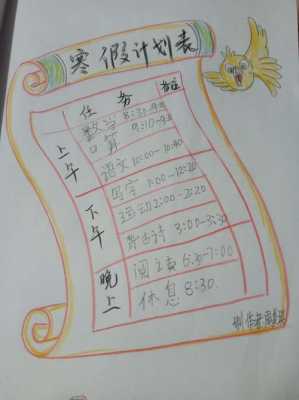 寒假计划表
任务 备注
上午
数学 8:30-9:10
口算 9:10-9:30
语文 10:00-10:40
写字 11:00-12:20
下午
运动 2:00-2:20
背古诗 3:00-3:30
晚上
阅读 6:30-7:00
休息 8:30.
制作者: